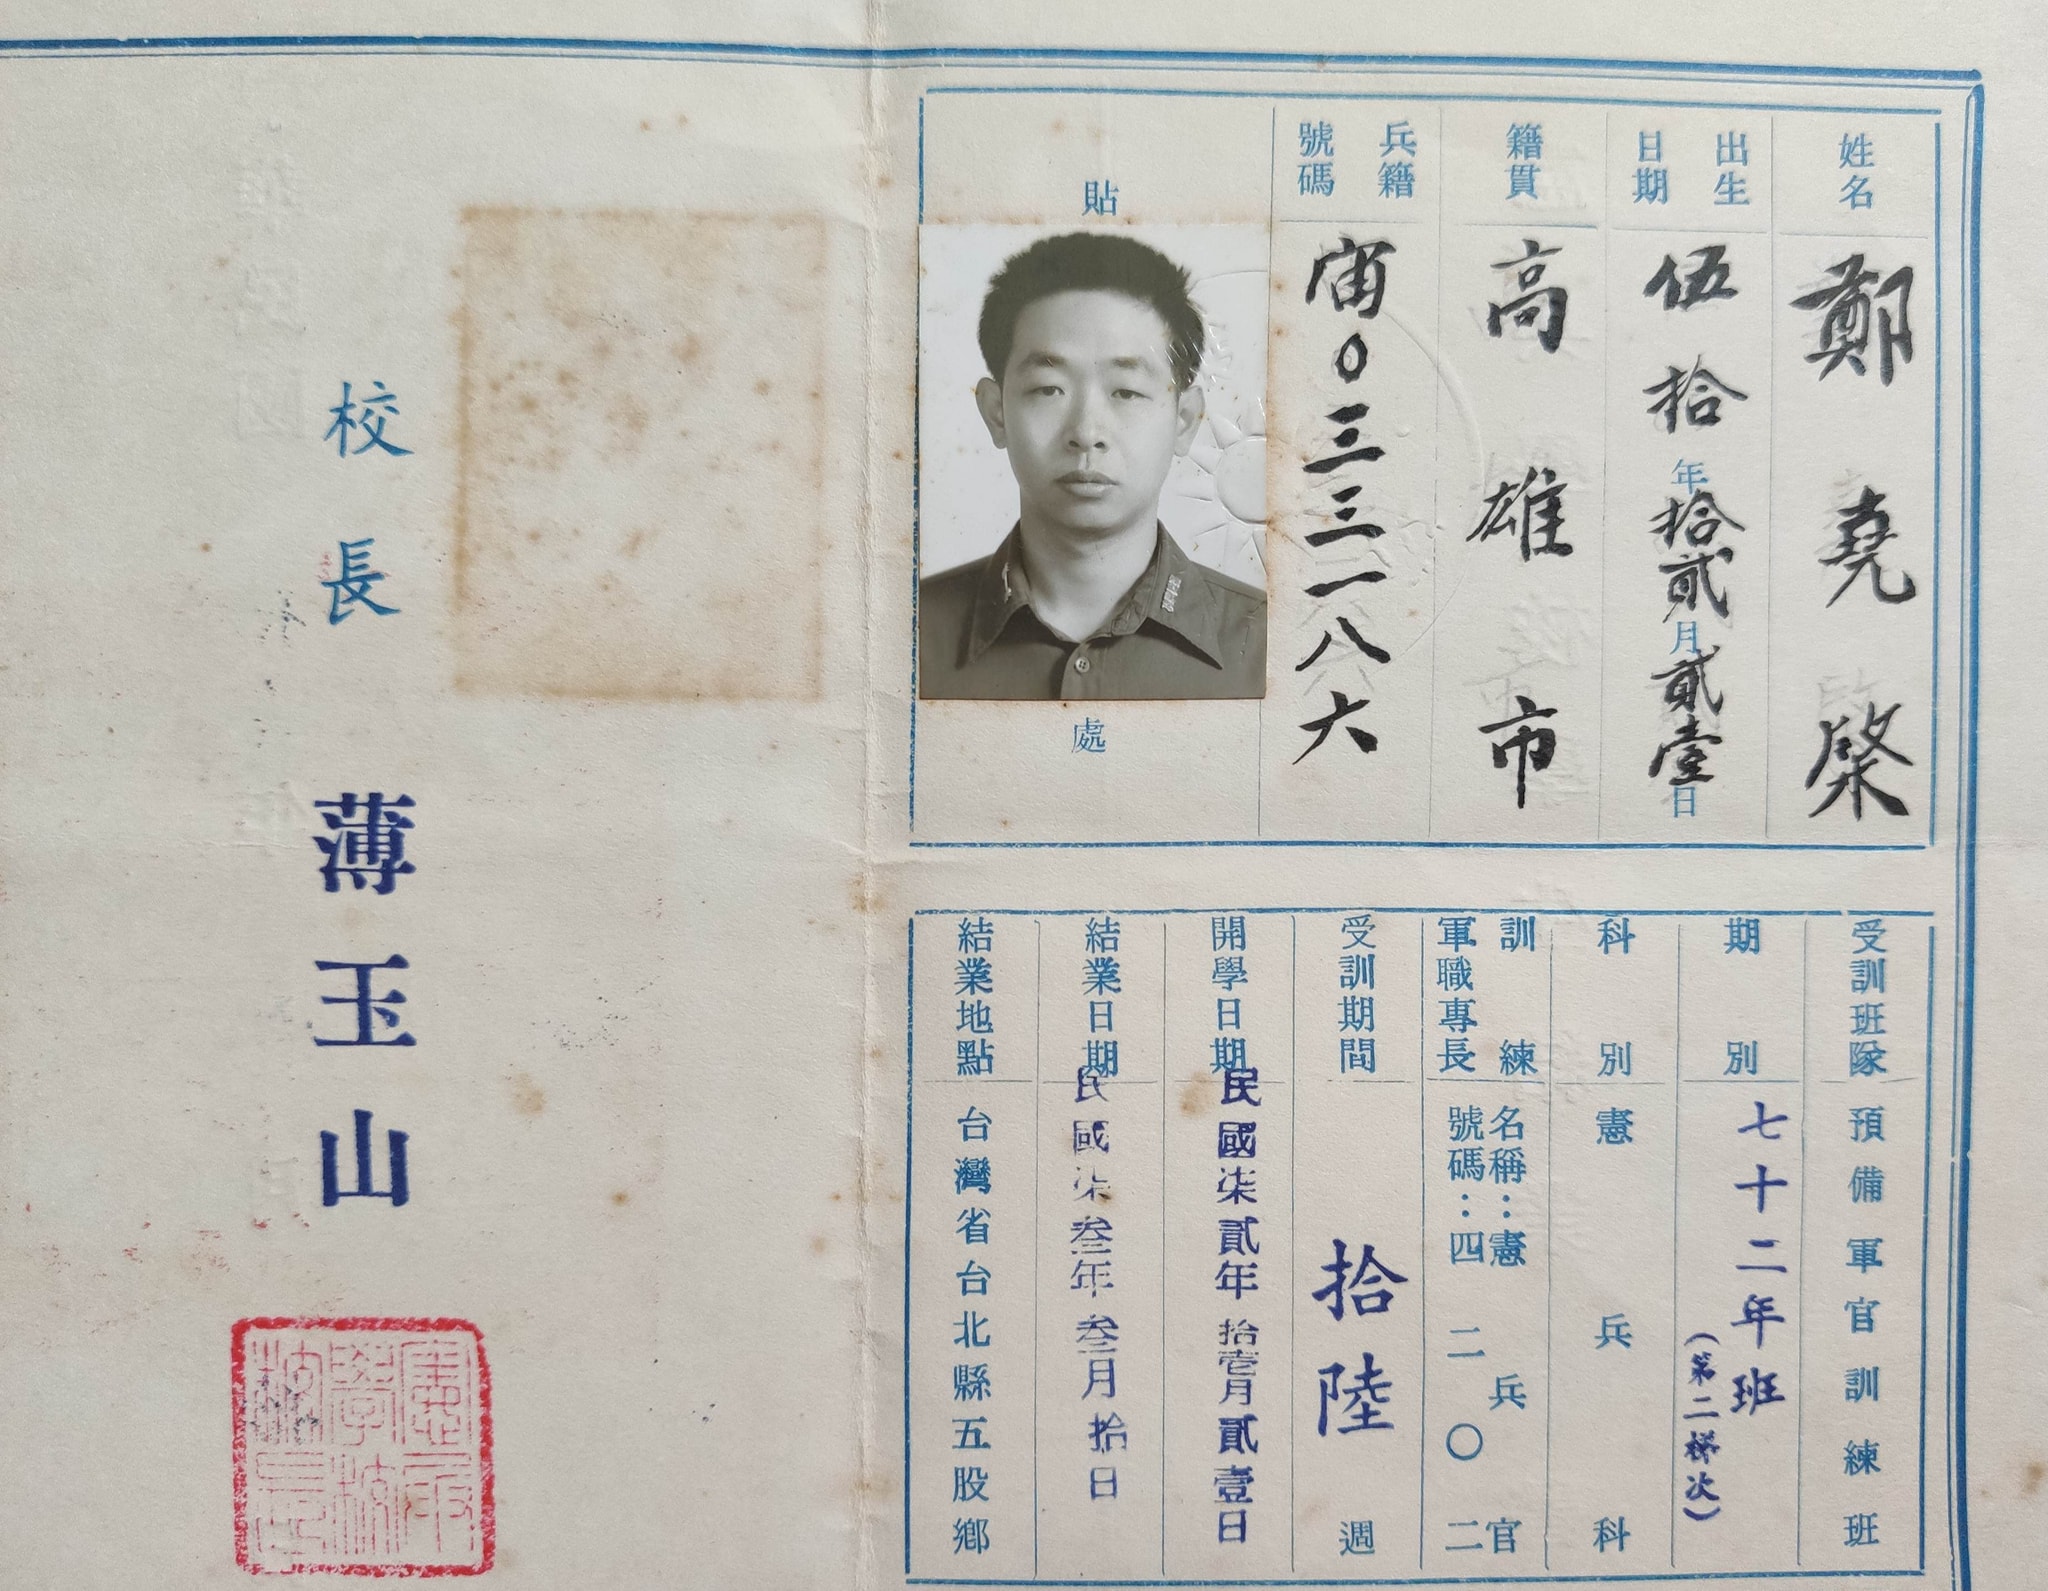 姓名 鄭堯棨
出生日期 伍拾年拾貳月貳壹日
籍貫 高雄市
兵籍號碼 宙0三三一八六
貼處
受訓班隊 預備軍官訓練班
期別 七十二年班(第二梯次)
科別 憲兵科
訓練軍職專長 名稱:憲兵官
號碼:四二〇二
受訓期間 拾陸週
開學日期 民國柒貳年拾壱月貳壹日
結業日期 民國柒叁年叁月拾日
結業地點 台灣省台北縣五股鄉
校長 薄玉山
憲兵學校校長